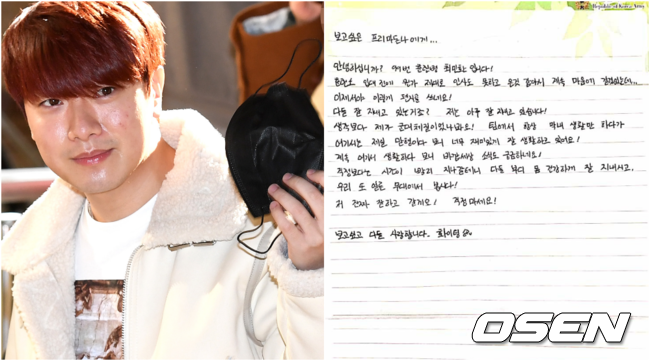 Republic of Korea Army
보고싶은 프리마도나에게...
안녕하십니까? 번 훈련병 최민환입니다!
훈련소 입대 전에 뭔가 제대로 인사도 못하고 온것 같아서 계속 마음에 걸렸었는데...
이제서야 이렇게 편지를 쓰네요!
다들 잘 지내고 있는거죠? 저는 아주 잘 지내고 있습니다!
생각보다 제가 군대체질이었나봐요! 팀에서 항상 막내 생활만 하다가
여기서는 제일 맏형이다 보니 너무 재미있게 잘 생활하고 있어요!
계속 여기서 생활하다 보니 바깥세상 소식도 궁금하네요!
걱정보다는 시간이 빨리 지나갈테니 다들 부디 몸 건강하게 잘 지내시고,
우리 또 웃는 무대에서 봅시다!
저 진짜 잘하고 갈게요! 걱정마세요!
보고싶고 다들 사랑합니다. 화이팅
OSEN